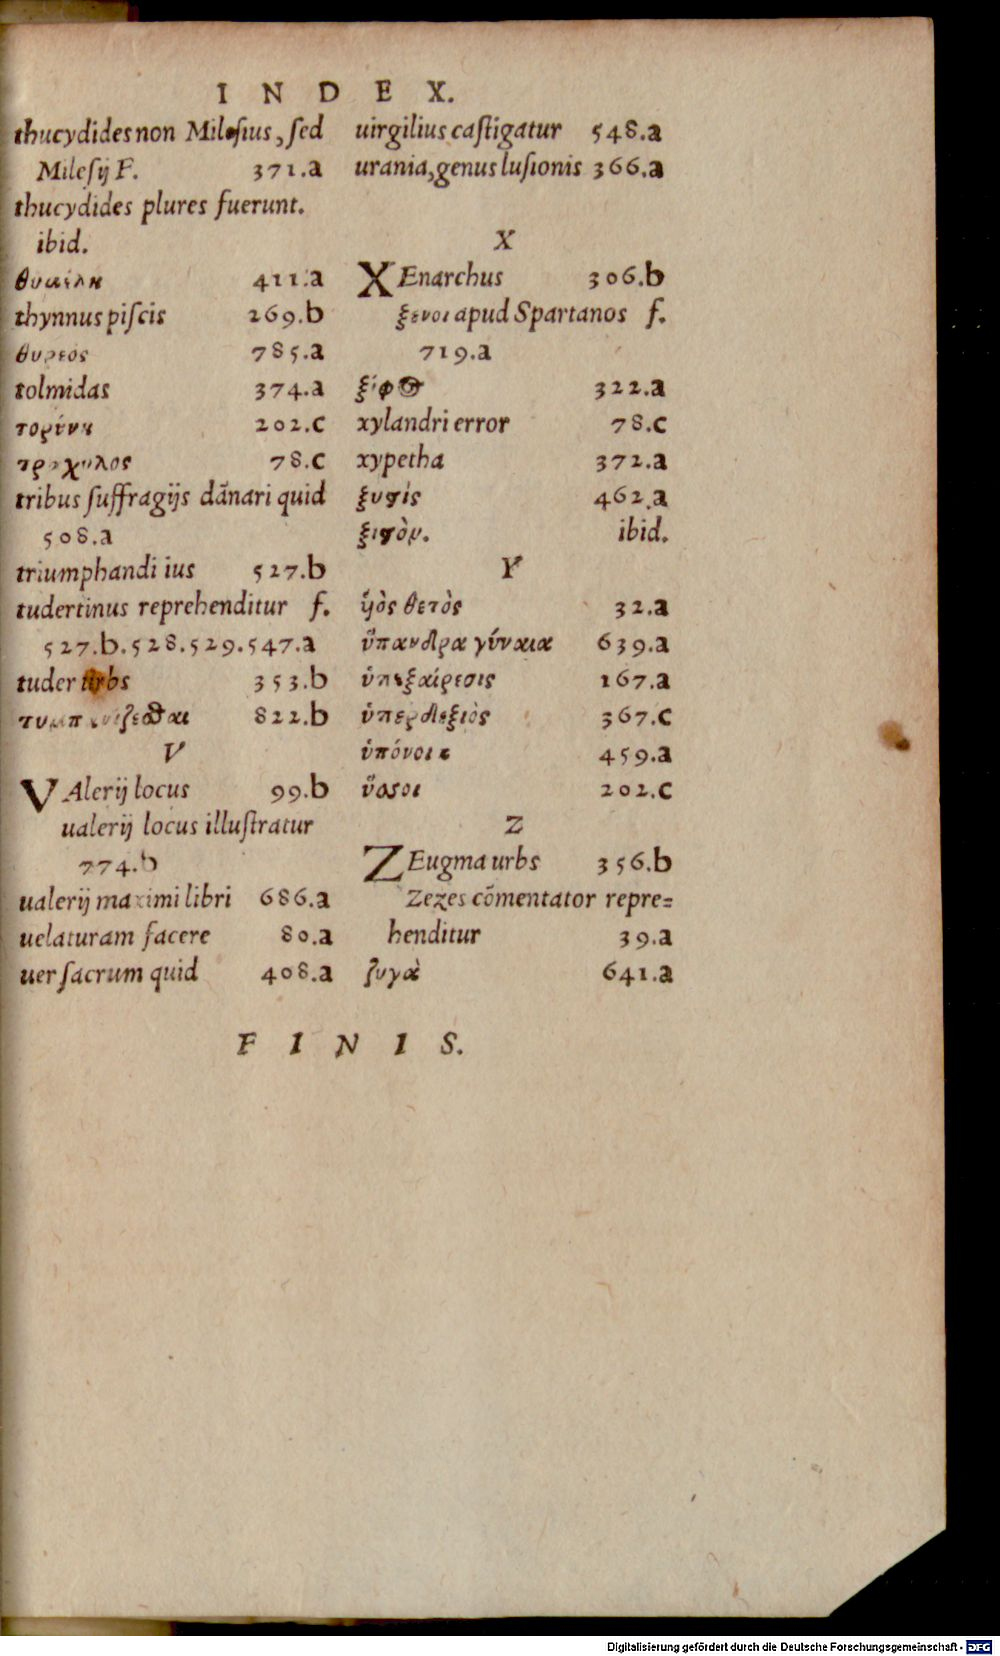 INDEX.
thucydides non Milesius, sed
Milesij F. 371.a
thucydides plures fuerunt.
ibid.
θυμέλη 411.a
thynnus piscis 269.b
θυρεός 785.a
tolmidas 374.a
τορύνη 202.c
τρόχιλος 78.c
tribus suffragijs dãnari quid
508.a
triumphandi ius 527.b
tudertinus reprehenditur f.
527.b.528.529.547.a
tuder urbs 353.b
τυμπανίζεσθαι 822.b
V
VAlerij locus 99.b
ualerij locus illustratur
774.b
ualerij maximi libri 686.a
uelaturam facere 80.a
uer sacrum quid 408.a
uirgilius castigatur 548.a
urania, genus lusionis 366.a
X
XEnarchus 306.b
ξενοι apud Spartanos f.
719.a
ξίφος 322.a
xylandri error 78.c
xypetha 372.a
ξυστὶς 462.a
ξιστὸν. ibid.
Y
ὑὸς θετὸς 32.a
ὕπανδρα γύναια 639.a
ὑπεξαίρεσις 167.a
ὑπερδεξιὸς 367.c
ὑπόνοια 459.a
ὕσσοι 202.c
Z
ZEugma urbs 356.b
Zezes cõmentator repre=
henditur 39.a
ζυγὰ 641.a
FINIS.
Digitalisierung gefördert durch die Deutsche Forschungsgemeinschaft - DFG